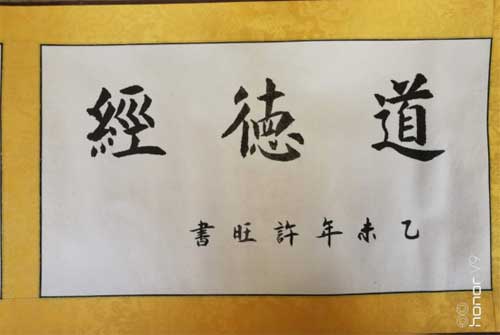 道徳經
乙未年許旺書
honor V9